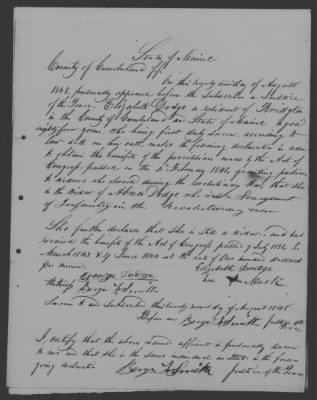 State of Maine
County of Cumberland ss
On this twenty second day of August
1848, personally appeared before the Subscriber a Justice
of the Peace, Elizabeth Dodge a resident of Bridgton
in the County of Cumberland and State of Maine aged
eighty four years who being first duly sworn according to
law doth on her oath, make the following declaration in order
to obtain the benefits of the provisions made by the Act of
Congress passed on the 2 February 1848, granting pensions
to widows who served during the Revolutionary War, that she
is the widow of Abner Dodge who was a
of Infantry in the Revolutionary
She further declares that she is still a widow, and has
received the benefits of the Act of Congress passed 7 July 1838, 3
March 1843 & 17 June 1844 at the rate of One hundred dollars
per annum.
Elizabeth Dodge
George Dodge
her + Mark
Witness
Sworn to and Subscribed this twenty second day of August 1848
Before me
I certify that the above named affiant is personally known
to me and that she is the same individual as stated in the fore-
going declaration
Justice of the Peace